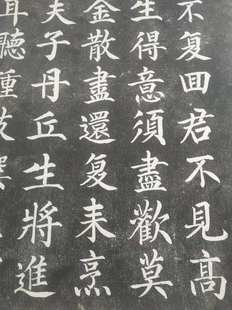 不复囬君不見高
生得意須盡歡莫
金散盡還复来烹
夫子丹丘生將進
耳聽